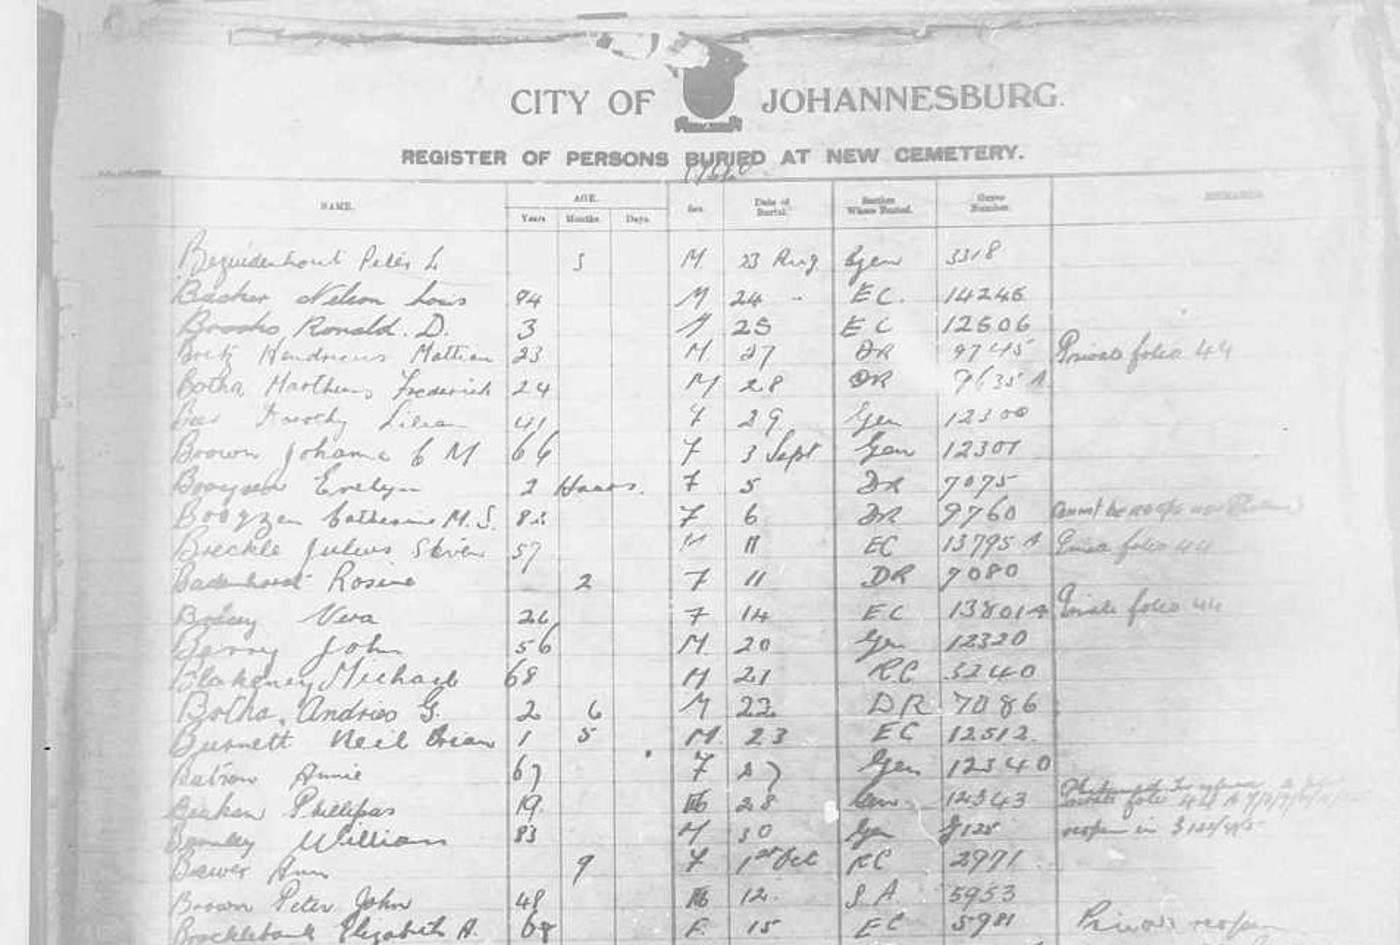 CITY OF JOHANNESBURG.
REGISTER OF PERSONS BURIED AT NEW CEMETERY.
NAME. AGE. Sex Date of Burial. Section Where Buried. Grave Number. REMARKS
Years Months Days.
Bezuidenhout Peter L 5 M. 23 Aug Gen 3318
Backer Nelson Louis 94 M 24 - EC. 14246
Brooks Ronald. D. 3 M 25 EC 12506
Britz Hendricus Mattian 23 M 27 DR 9745 Private folio 44
Botha Marthinus Frederick 24 M 28 DR 9635 A
Dorothy Lilian 41 F 29 Gen 12300
Brown Johanna C M 66 F 3 Sept Gen 12301
Booysen Evelyn 2 Hours. F 5 DR 7075
Booyzen Catherine M. S. F 6 DR 9760
Breckle Julius Steven 57 M 11 EC 13795 A folio 44
Badenhorst Rosine 2 F 11 DR 7080
Vera F 14 EC 13801A Private folio 44
Berry John 56 M. 20 Gen 12320
Blakeney Michael 68 M 21 RC 3240
Botha, Andries G. 2 6 M 22 DR 7086
Burnett Neil Brian 1 5 M. 23 EC 12512.
Annie 67 F 27 Gen 12340
Phillipas 19. M 28 Gen 12343 folio
Bromley William 83 M 30 Gen reopen in
Brewer Ann 9 F 1st Oct RC 2971
Brown Peter John 48 M 12. S. A. 5953
Brocklebank Elizabeth A. F. 15 EC 5981 Private reopen